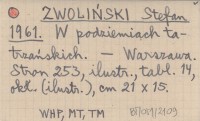 ZWOLIŃSKI Stefan
1961. W podziemiach ta-
trzańskich. — Warszawa.
Stron 253, ilustr., tabl. 14,
okł. (ilustr.), cm 21 x 15.
WHP, MT, TM